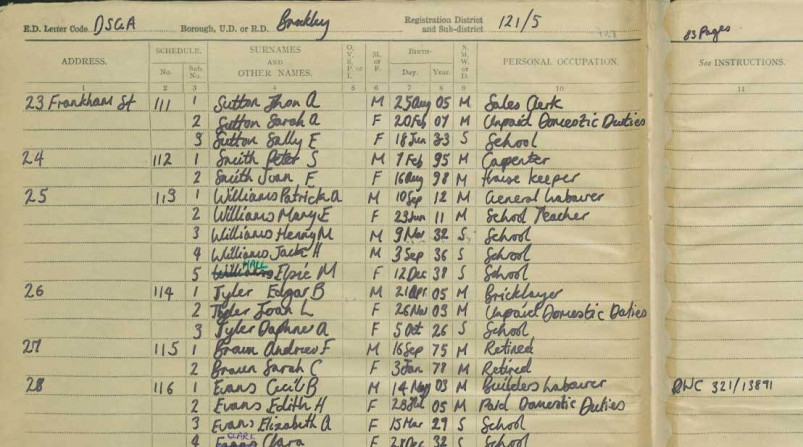 E.D. Letter Code DSGA Borough, U.D. or R.D. Brockley Registration District and Sub-district 121/5 83 Pages
ADDRESS. SCHEDULE. No. Sub. No. SURNAMES AND OTHER NAMES. O., V., S., P. or I. M. or F. BIRTH- Day. Year. S. M. W. or D. PERSONAL OCCUPATION. See INSTRUCTIONS.
1 2 3 4 5 6 7 8 9 10 11
23 Frankham St 111 1 Sutton Jhon A M 25 Aug 05 M Sales Clerk
2 Sutton Sarah A F 20 Feb 07 M Unpaid Domestic Duties
3 Sutton Sally E F 18 Jun 33 S School
24 112 1 Smith Peter S M 7 Feb 95 M Carpenter
2 Smith Joan F F 16 Aug 98 M House keeper
25 113 1 Williams Patrick A M 10 Sep 12 M General Labourer
2 Williams Mary E F 23 Jun 11 M School Teacher
3 Williams Henry M M 9 Mar 32 S School
4 Williams Jack H M 3 Sep 36 S School
HALL
5 Williams Elsie M F 12 Dec 38 S School
26 114 1 Tyler Edgar B M 21 Apr 05 M Bricklayer
2 Tyler Joan L F 26 Nov 03 M Unpaid Domestic Duties
3 Tyler Daphne A F 5 Oct 26 S School
27 115 1 Braun Andrew F M 16 Sep 75 M Retired
2 Braun Sarah C F 3 Jan 78 M Retired
28 116 1 Evans Cecil B M 14 May 03 M Builders Labourer RNC 321/13891
2 Evans Edith H F 28 Jul 05 M Paid Domestic Duties
3 Evans Elizabeth A F 15 Mar 29 S School
4 Clara F Dec 32 S School